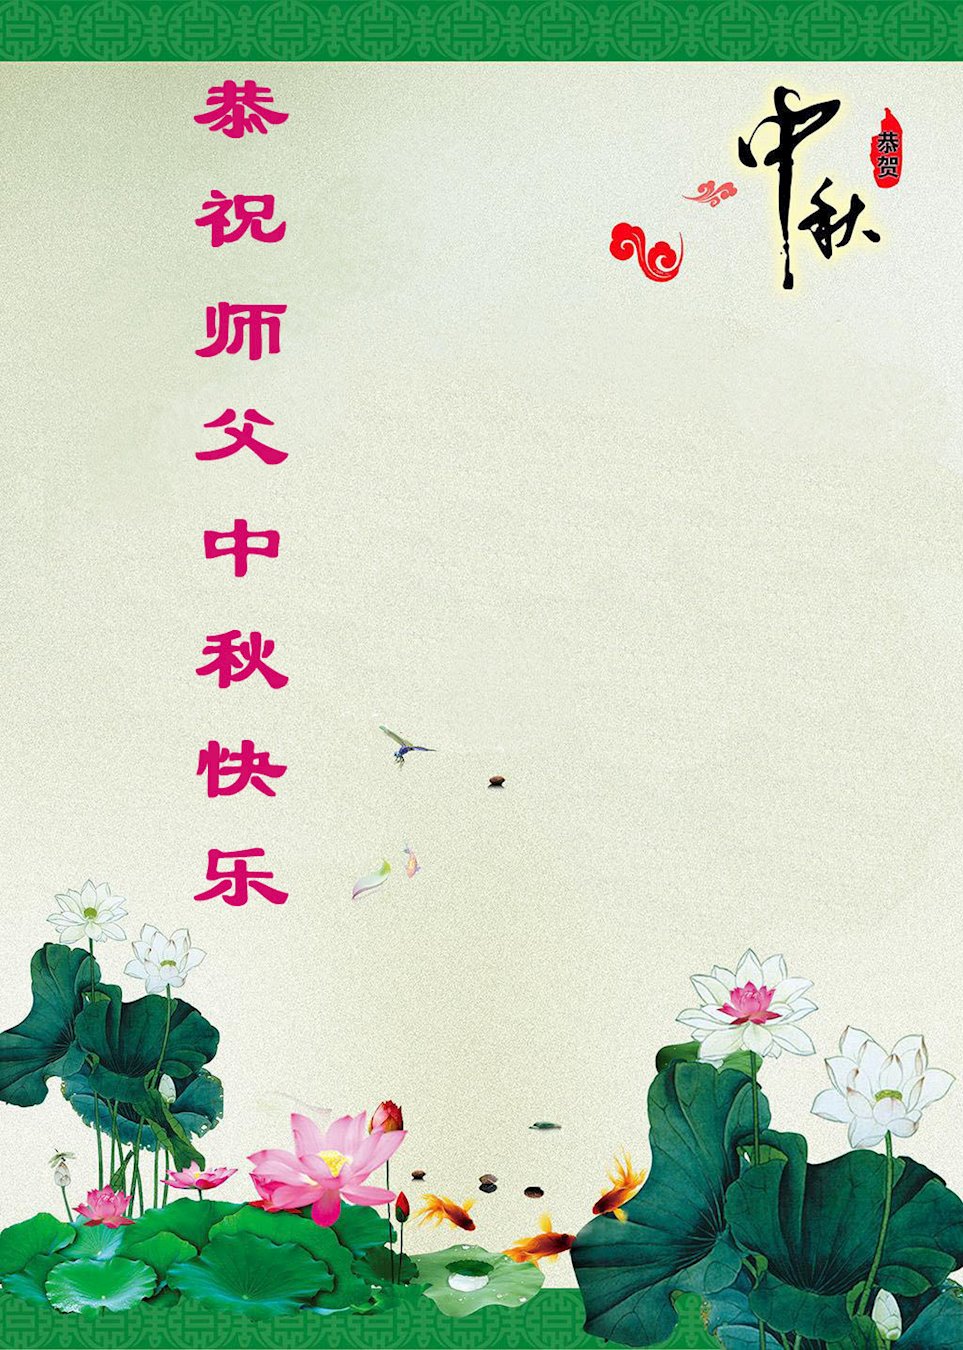 恭祝师父中秋快乐
中秋
恭贺